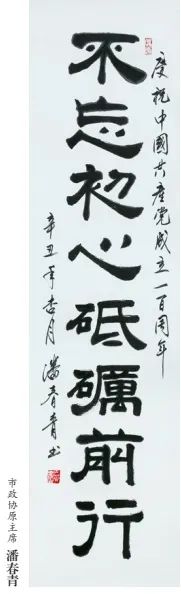 慶祝中國共產党成立一百周年
不忘初心砥礪前行
辛丑年杏月潘春青书
市政协原主席 潘春青